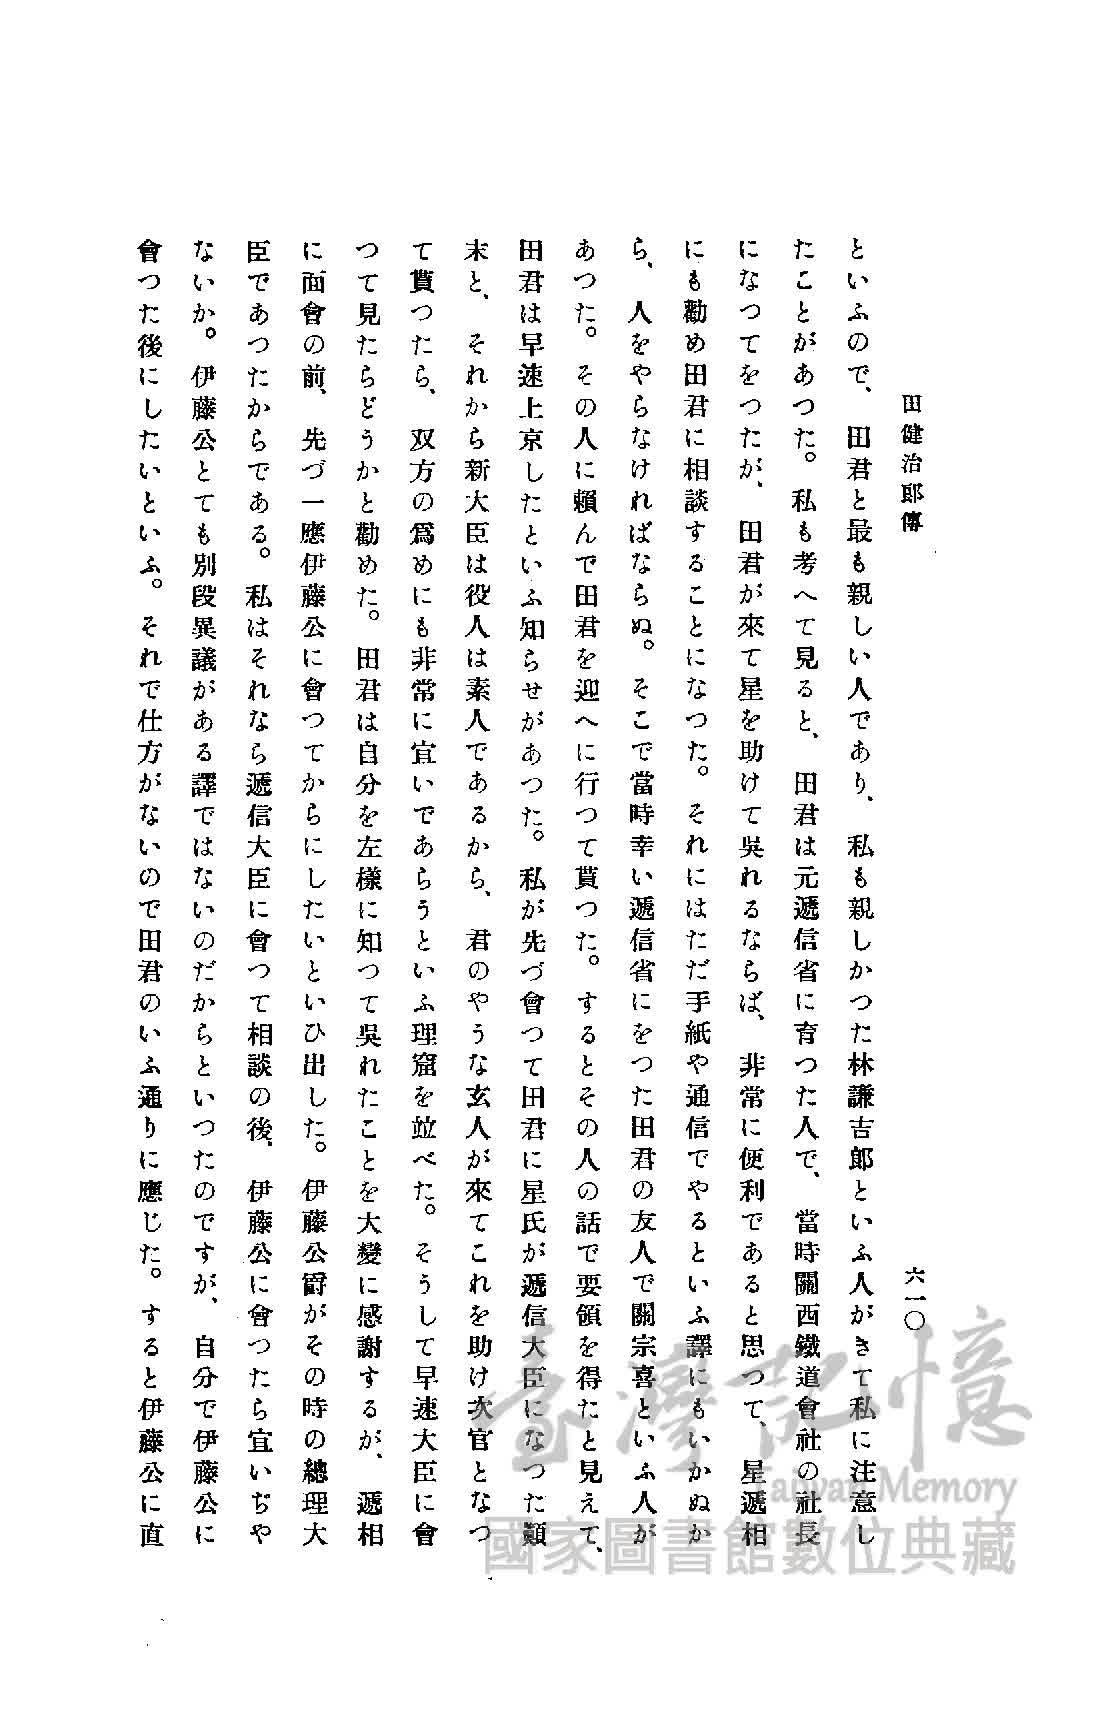 田健治郎傳
六一〇
といふので、田君と最も親しい人であり、私も親しかつた林謙吉郎といふ人がきて私に注意し
たことがあつた。私も考へて見ると、田君は元遞信省に育つた人で、當時關西鐵道會社の社長
になつてをつたが、田君が來て星を助けて吳れるならば、非常に便利であると思つて、星遞相
にも勸め田君に相談することになつた。それにはただ手紙や通信でやるといふ譯にもいかぬか
ら、人をやらなければならぬ。そこで當時幸い遞信省にをつた田君の友人で關宗喜といふ人が
あつた。その人に賴んで田君を迎へに行つて貰つた。するとその人の話で要領を得たと見えて、
田君は早速上京したといふ知らせがあつた。私が先づ會つて田君に星氏が遞信大臣になつた顚
末と、それから新大臣は役人は素人であるから、君のやうな玄人が來てこれを助け次官となつ
て貰つたら、双方の爲めにも非常に宜いであらうといふ理窟を竝べた。そうして早速大臣に會
つて見たらどうかと勸めた。田君は自分を左樣に知つて吳れたことを大變に感謝するが、遞相
に面會の前、先づ一應伊藤公に會つてからにしたいといひ出した。伊藤公爵がその時の總理大
臣であつたからである。私はそれなら遞信大臣に會つて相談の後、伊藤公に會つたら宜いぢや
ないか。伊藤公とても別段異議がある譯ではないのだからといつたのですが、自分で伊藤公に
會つた後にしたいといふ。それで仕方がないので田君のいふ通りに應じた。すると伊藤公に直
臺灣記憶
Taiwan Memory
國家圖書館數位典藏